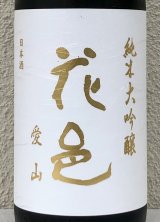 純米大吟醸
花邑
愛山
日本酒